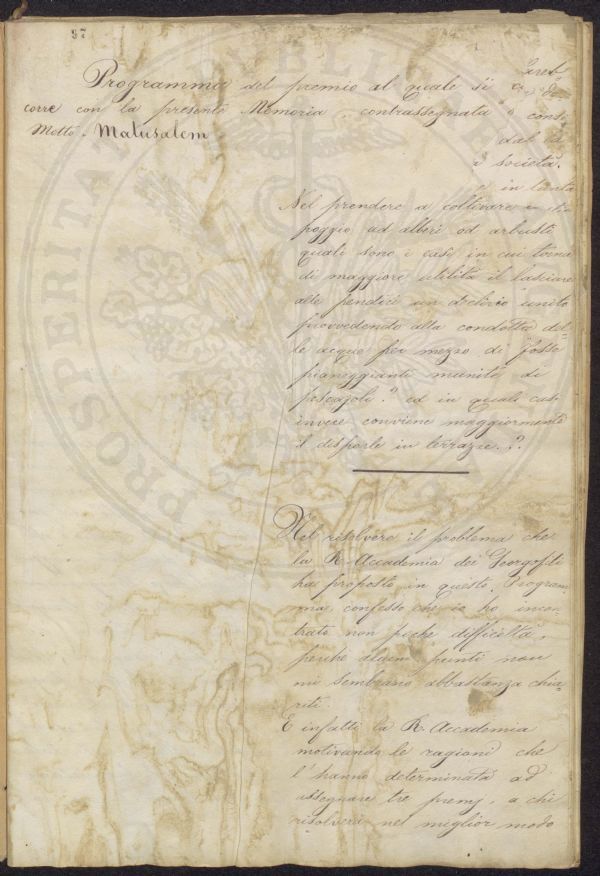 97
Programma del premio al quale si
corre con la presente Memoria, contrassegnata
Motto. Matusalem
dal
società.
in tanta
Nel prendere a coltivare
poggio ad alberi od arbusti
quali sono i casi in cui torna
di maggiore utilità il lasciare
alle pendici un declivio unito
provvedendo alla condotta del-
le acque per mezzo di fosse
pianeggianti munite di
pescajoli? ed in quale caso
invece conviene maggiormente
il disporle in terrazze.?
Nel risolvere il problema che
la R. Accademia dei Georgofili
ha proposto in questo Program-
ma, confesso che io ho incon-
trato non poche difficoltà,
perché alcuni punti non
mi sembrano abbastanza chia-
riti.
E infatti la R. Accademia
motivando le ragioni che
l'hanno determinata ad
assegnare tre premj, a chi
risolverà nel miglior modo
PROSPERITATI PUBLICAE